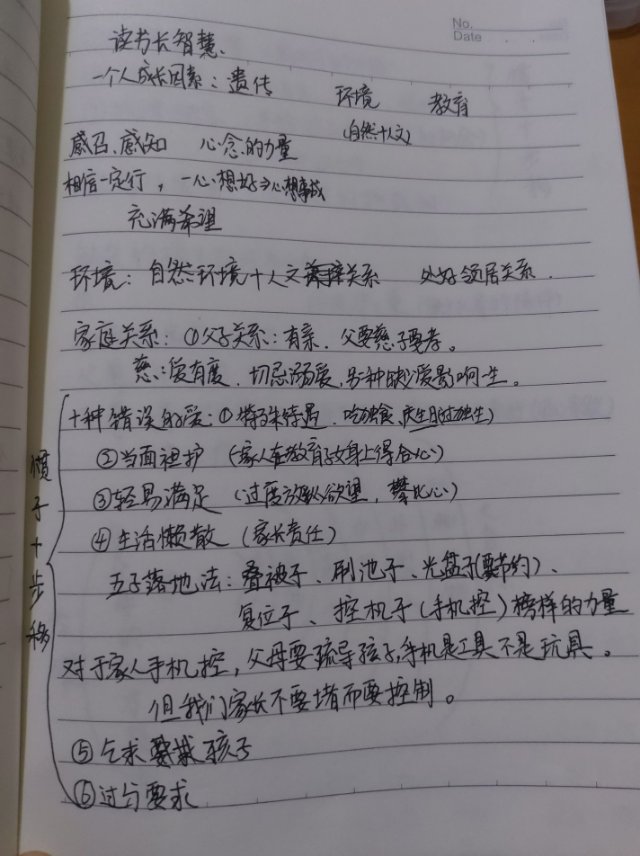 No.
Date
读书长智慧、
一个人成长因素：遗传 环境 教育
(自然+人文)
感召、感知 心念的力量
相信一定行，一心想好⇒心想事成
充满希望
环境：自然环境+人文关系 处好领居关系.
家庭关系：①父子关系：有亲、父要慈子要孝。
慈：爱有度、切忌溺爱,影响一生。
十种错误的爱：①特殊待遇、吃独食,庆生日过独生)
②当面袒护 (家人在教育子女身上得合心)
③轻易满足 (过度放纵欲望，攀比心)
④生活懒散 (家长责任)
五子落地法：叠被子、刷池子、光盘子(要节约)、
复位子、控机子(手机控)榜样的力量
对于家人手机控，父母要疏导孩子,手机是工具不是玩具。
但我们家长不要堵而要控制。
⑤乞求孩子
⑥过分要求
惯子十步